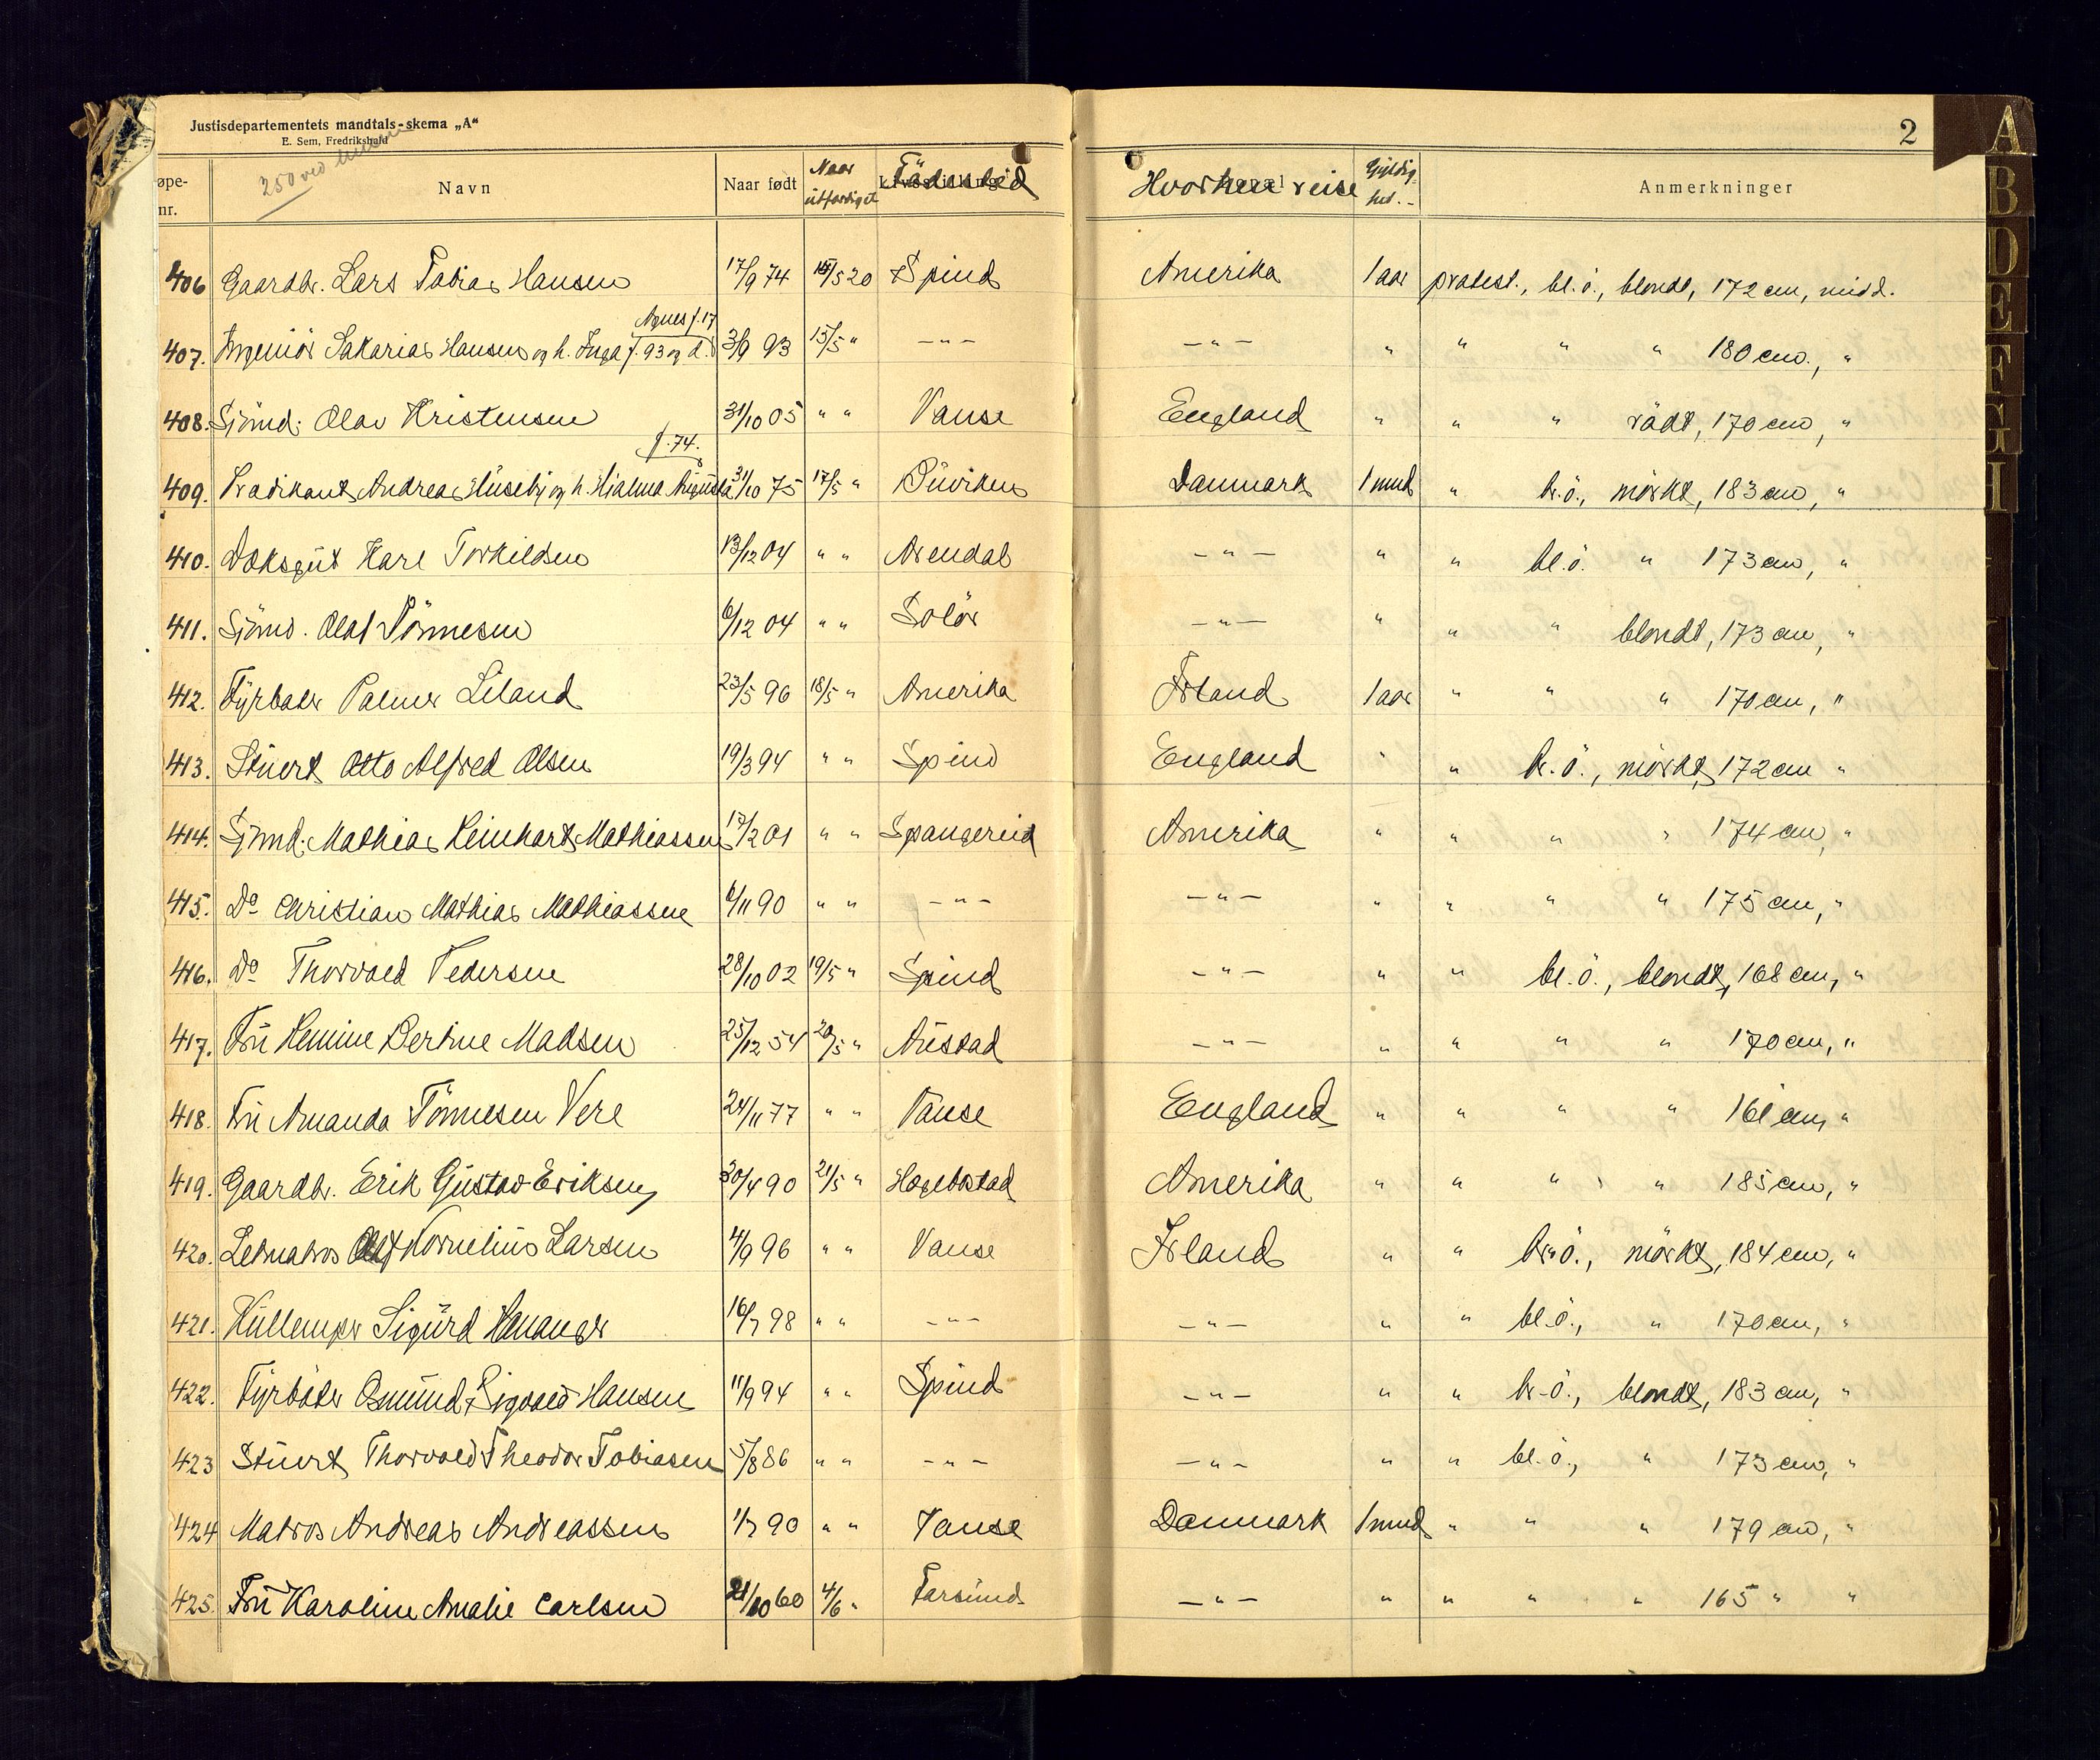 Justisdepartementets mandtals-skema „A“
E. Sem, Fredrikshald
250 ved
2
øpe-nr. Navn Naar født Naar utfærdiget Födested Hvorhen reise Gyldighet. Anmerkninger
406 Gaardbr. Lars Tobias Hansen 17/9 74 15/5 20 Spind Amerika 1 aar protest., bl.ö., blondt, 172 cm, midd.
Agnes f. 17
407. Ingeniör Sakarias Hansen og h. Inga f. 93 og d. 3/9 93 15/5 " -"- -"- " " " " 180 cm., "
408. Sjömd. Olav Kristensen 31/10 05 " " Vanse England " " " rödt, 170 cm, "
f. 74.
409. Prædikant Andreas Huseby og h. Hjalma Augusta 31/10 75 17/5 " Buviken Danmark 1 mnd " br.ö., mörkt, 183 cm, "
410. Dæksgut Karl Torkildsen 13/12 04 " " Arendal -"- " " bl.ö. " 173 cm, "
411. Sjömd. Olaf Tönnesen 6/12 04 " " Solör -"- " " " blondt, 173 cm, "
412. Fyrböter Palmer Liland 23/5 96 18/5 " Amerika Irland 1 aar " " " 170 cm, "
413. Stuert Otto Alfred Olsen 19/3 94 " " Spind England " " br.ö., mörkt, 172 cm "
414. Sjömd. Mathias Reinhart Mathiassen 17/2 01 " " Spangereid Amerika " " " " 174 cm, "
415. Do Christian Mathias Mathiassen 6/11 90 " " -"- -"- " " " " 175 cm, "
416. Do Thorvald Pedersen 28/10 02 19/5 " Spind -"- " " bl.ö., blondt, 168 cm, "
417. Fru Hemine Bertine Madsen 25/12 54 20/5 " Austad -"- " " " " 170 cm, "
418. Fru Amanda Tönnesen Vere 24/11 77 " " Vanse England " " " " 161 cm, "
419. Gaardbr. Erik Gustav Eriksen 30/4 90 21/5 " Hægebostad Amerika " " " " 185 cm, "
420. Letmatros Olaf Kornelius Larsen 4/9 96 " " Vanse Irland " " br.ö., mörkt, 184 cm, "
421. Kullemper Sigurd Hananger 16/7 98 " " -"- -"- " " bl.ö., " 170 cm, "
422. Fyrböter Osmund Sigvald Hansen 11/9 94 " " Spind -"- " " br.ö., blondt, 183 cm, "
423 Stuert Thorvald Theodor Tobiasen 5/8 86 " " -"- -"- " " bl.ö., " 173 cm, "
424 Matros Andreas Andreassen 1/7 90 " " Vanse Danmark 1 mnd " " " 179 cm, "
425. Fru Karoline Amalie Carlsen 21/10 60 4/6 " Farsund -"- " " " " 165 " "
A
B
D
E
F
G
H